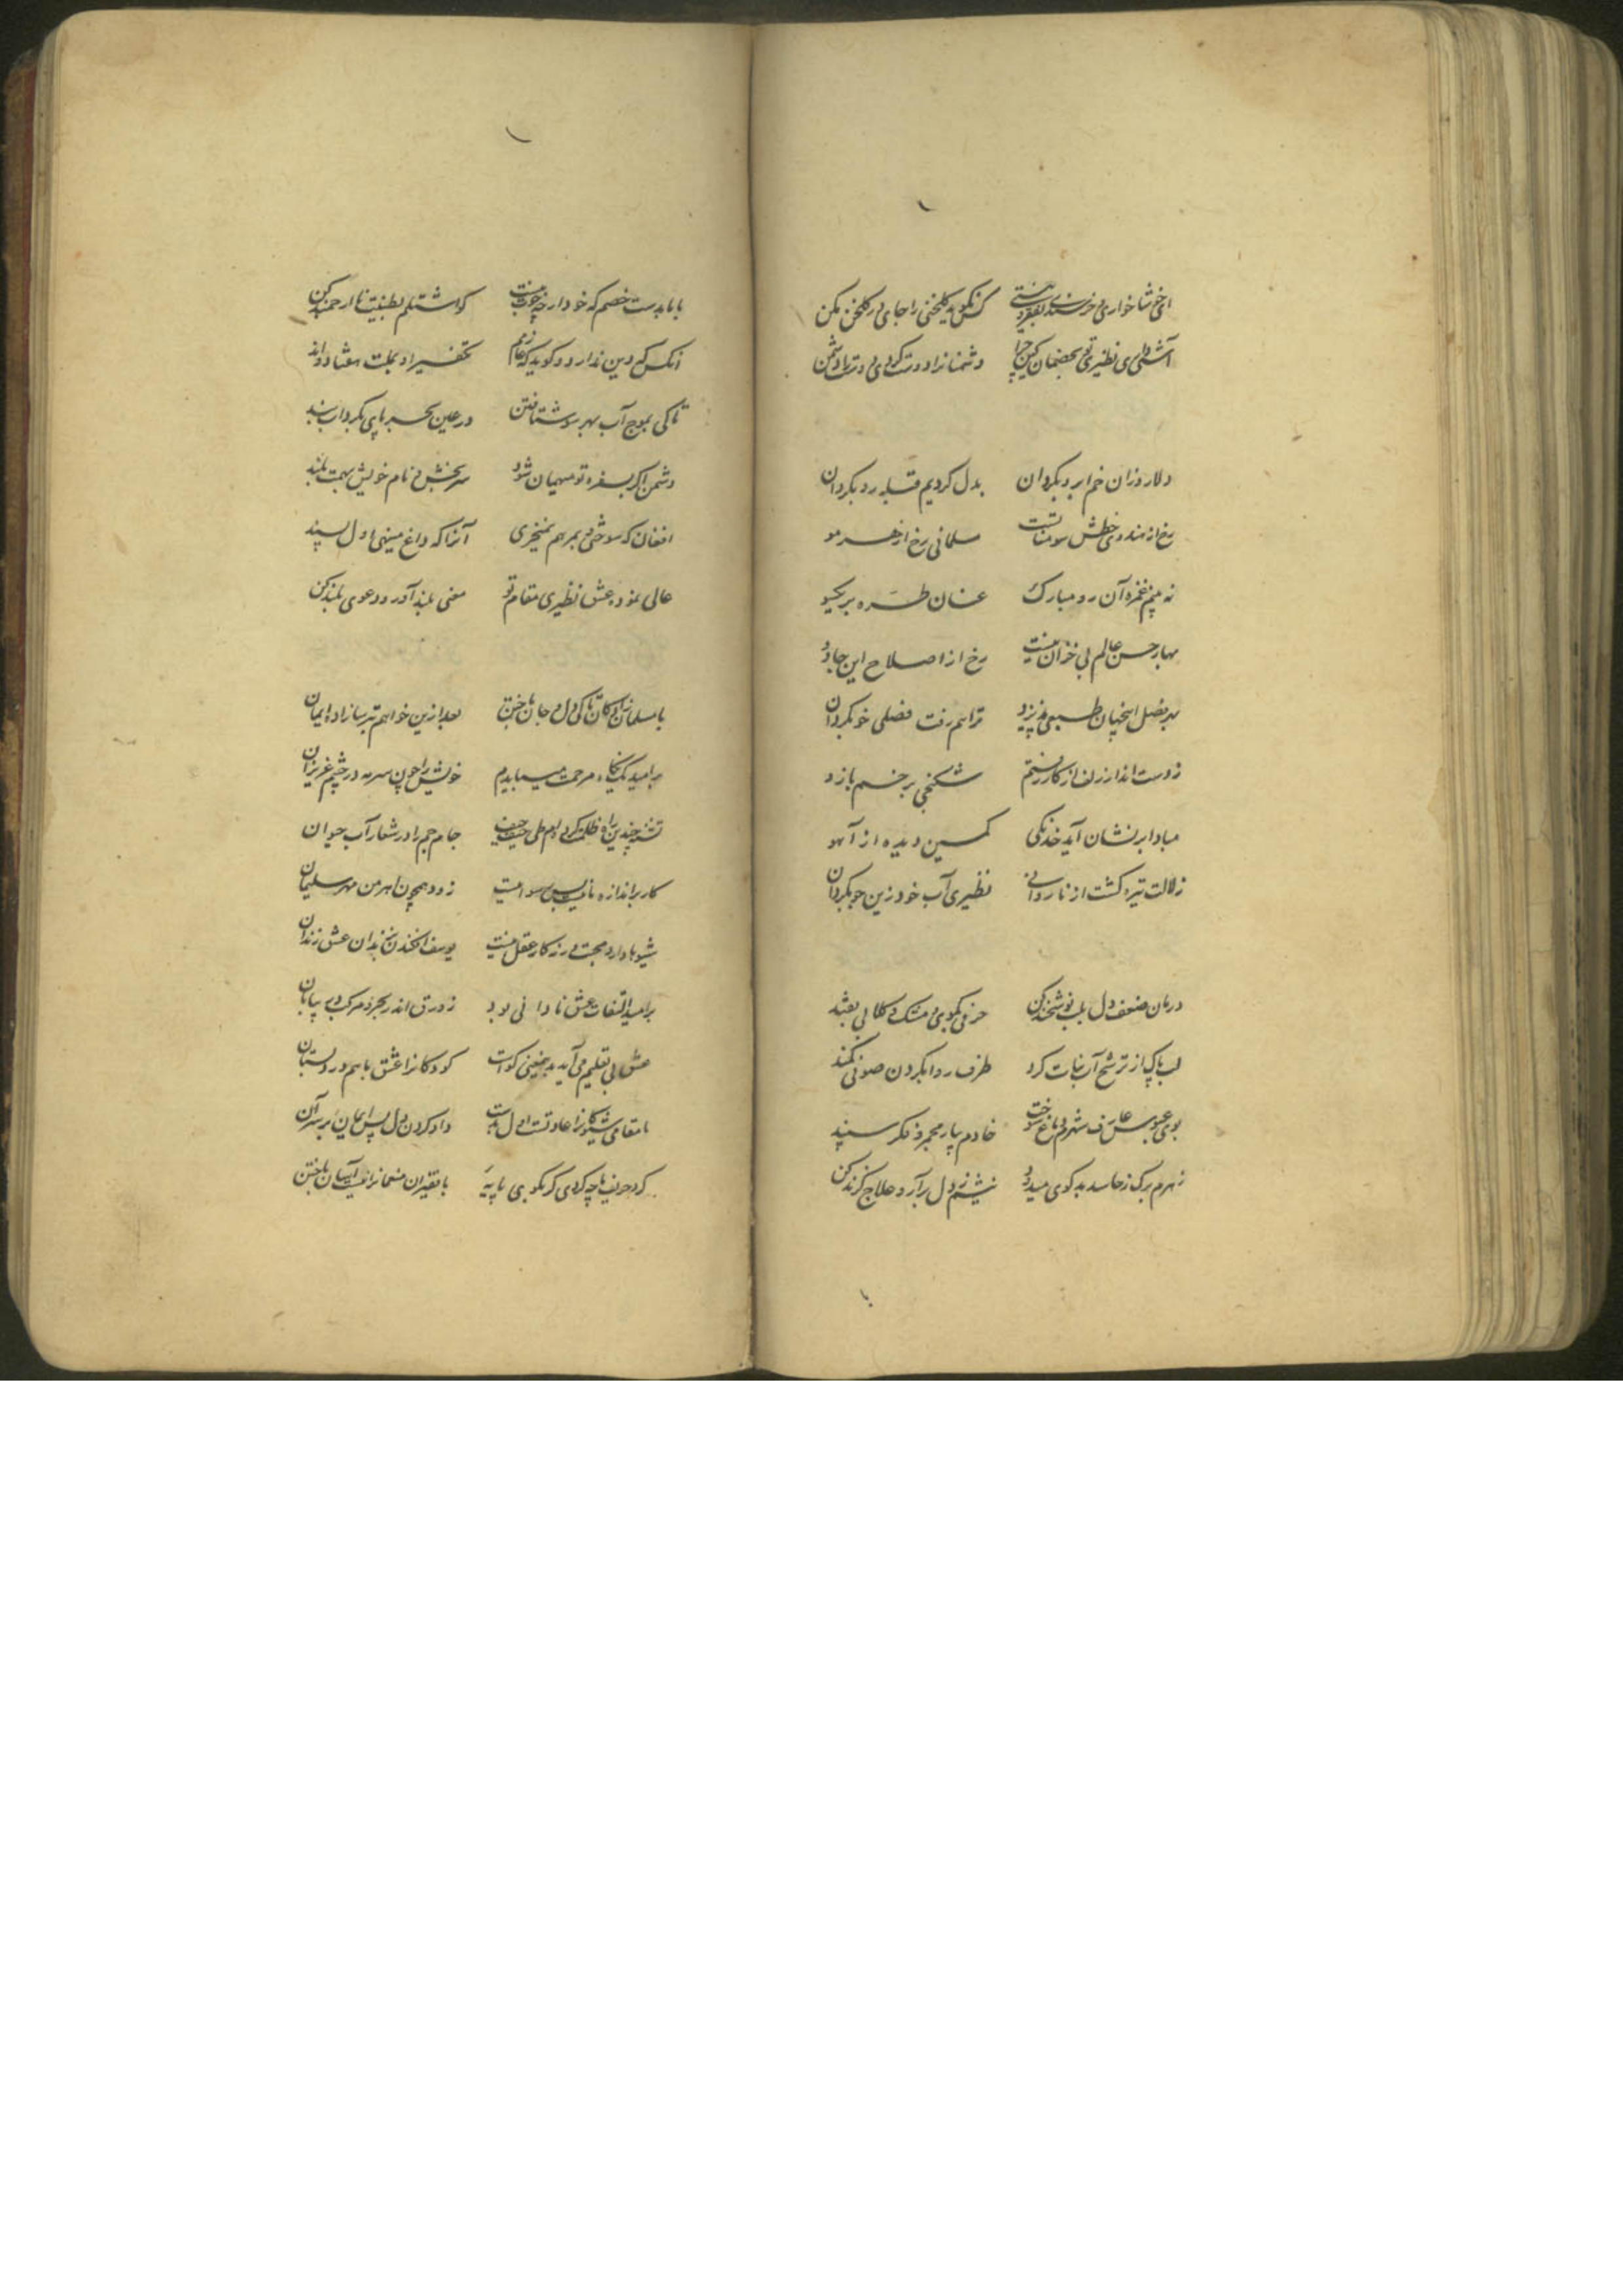 ای خوشا خواری و خرسندی بفقر و نیستی کس نگوید گلخنی را جای در گلخن مکن
آشتی داری نظیری با تو خصمان کین چرا دشمنانرا دوست کردی دوست را دشمن
دلا رو زان خم ابرو بگردان بدل کردیم قبله رو بگردان
رخ از هندوی خطش سومناتست مسلمانی رخ از هر مو
نه بینم غمزه آن رو مبارک عنان طره بر یکسو
بهار حسن عالم بی خزان نیست رخ از اصلاح این جادو
بهر فصل اینچنان طبعی پذیرد ترا هم رفت فصلی خو بگردان
ز دست انداز زلف از کار رفتم شکنجی بر خم بازو
مبادا بر نشان آید خدنگی کمین دیده از آهو
زلالت تیره گشت از ناروانی نظیری آب خود زین جو بگردان
درمان ضعف دل بلب نوشخند کن حرفی بگوی و مشک و گلابی بقند
لب پاک از ترشح آب نبات کرد طرف ردا بگردن صوفی کمند
بوی عبوس عارف شهرم دماغ سوخت خادم بیار مجمر و فکر سپند
زهرم برگ ز حاسد بدگوی میدود نیشم ز دل برآر و علاج گزند کن
با ما بدست خصم که خود دار چوب نیست کو اشتلم بطینت نا ارجمند کن
آنکس که دین ندارد و گوید که عارفم تکفیر او بملت هفتاد و اند
تا کی بموج آب بهر سو شتافتن در عین بحر پای بگرداب بند
دشمن اگر بسفره تو میهمان شود سر بخش و نام خویش بهمت بلند
افغان که سوختی و بمرهم نمیخری آنرا که داغ مینهی اول پسند
عالی نموده عشق نظیری مقام تو معنی بلند آور و دعوی بلند کن
با مسلمان زادگان تا کی دل و جان باختن بعد ازین خواهم بترسازاده ایمان
بر امید یک نگاه مرحمت میبایدم خویش را چون سرمه در چشم عزیزان
تشنه چندین راه ظلمت کرده ام طی حیف حیف جام جم را در شمار آب حیوان
کار بر اندازه بایست پس سودا نیست زود همچون اهرمن مهر سلیمان
شیوها دارد محبت ورنه کار عقل نیست یوسف افکندن بزندان عشق زندان
بر امید التفات عشق نادانی بود زورق اندر بحر و مرکب در بیابان
عشق بی تعلیم می آید بدینمعنی گواست کودکانرا عشق با هم در دبستان
با مقامی شیوگانرا عادتست اول بدست داو کردن دل پس ایمان بر سر آن
کرد حریف ما چه کردی گر نگوبی مایه با فقیران منعمانرا نیست آسان باختن